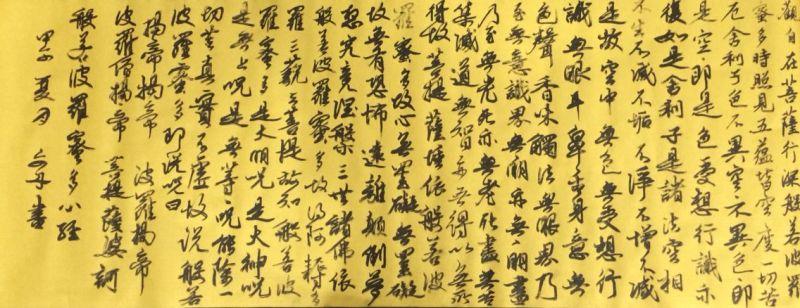 觀自在菩薩行深般若波羅
蜜多時照見五蘊皆空度一切苦
厄舍利子色不異空不異色即
是空即是色受想行識亦
復如是舍利子是諸法空相
不生不滅不垢不淨不增不減
是故空中無色無受想行
識無眼耳鼻舌身意無
色聲香味觸法無眼界乃
至無意識界無明亦無明盡
乃至無老死亦無老死盡無苦
集滅道無智亦無得以無所
得故菩提薩埵依般若波
羅蜜多故心無罣礙無罣礙
故無有恐怖遠離顛倒夢
想究竟涅槃三世諸佛依
般若波羅蜜多故得阿耨多
羅三藐三菩提故知般若波
羅蜜多是大明呪是大神呪
是無上呪是無等呪能除一
切苦真實不虛故說般若
波羅蜜多即說呪曰
揭帝揭帝 波羅揭帝
波羅僧揭帝 菩提薩婆訶
般若波羅蜜多心經
夏月 書